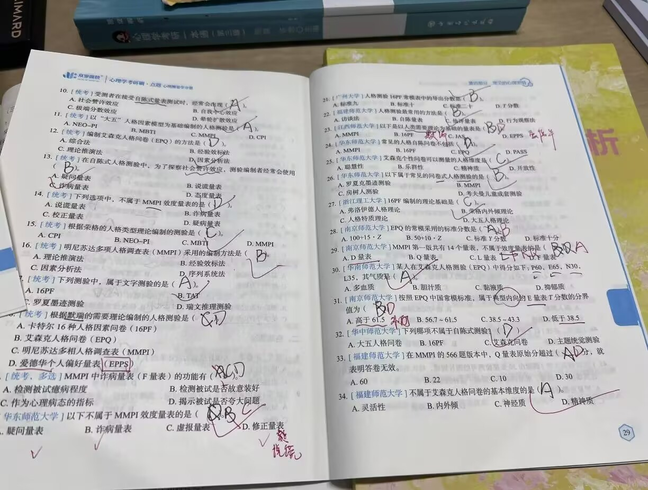 心理学考研 一本通
MMARD
心理学考研 · 点题
10. [统考] 受测者在接受自陈式量表测试时，经常会出现( A )。
A. 社会赞许效应 B. 自我中心效应
C. 极端分数效应
11. [统考] 以“大五”人格因素模型为基础编制的人格测验是( A )。
A. NEO-PI B. MBTI C. MMPI D. CPI
12. [统考] 编制艾森克人格问卷(EPQ)的方法是( D )。
A. 综合法 B. 经验效标法
C. 理论推演法 D. 因素分析法
13. [统考] 在自陈式人格测验中，为了探察社会赞许效应，测验编制者经常会使用
( B )。
A. 疑问量表 B. 说谎量表
C. 诈病量表 D. 态度量表
14. [统考] 下列选项中，不属于 MMPI 效度量表的是( D )。
A. 说谎量表 B. 诈病量表
C. 校正量表 D. 疑病量表
15. [统考] 根据荣格的人格类型理论编制的测验是( C )。
A. CPI B. NEO-PI C. MBTI D. MMPI
16. [统考] 明尼苏达多项人格调查表(MMPI)采用的编制方法是( B )。
A. 理论推演法 B. 经验效标法
C. 因素分析法 D. 序列系统法
下列测验中，属于文字测验的是( A )。
A. 16PF B. TAT
罗夏墨迹测验 D. 瑞文推理测验
[统考] 根据默瑞的需要理论编制的人格测验是( D )
A. 卡特尔 16 种人格因素问卷(16PF)
B. 艾森克人格问卷(EPQ)
C. 明尼苏达多相人格调查表(MMPI)
D. 爱德华个人偏好量表(EPPS)
[统考、多选] MMPI 中诈病量表(F 量表)的功能有( ACD )
A. 检测被试瘾病程度 B. 检测被试是否故意装好
C. 作为心理病态的指标 D. 揭示被试是否夸大问题
华东师范大学] 以下不属于 MMPI 效度量表的是( B )
疑问量表 B. 诈病量表 C. 虚报量表 D. 修正量表
21. [广州大学] 人格测验 16PF
A. 标准九 B. 标准十 C. 标准二十 D. T 分数
22. [福建师范大学] 人格测验最常用的方法是( B )。
A. 访谈法 B. 自陈量表 C. 投射量表 D. 行为观察法
23. [江西师范大学] 以下是以人类需要理论为基础的量表是( D )
A. 16PF B. MMPI D. EPPS
24.
A. MMPI B. 16PF C. EPQ D. PASS
25. [华东师范大学] 艾森克个性问卷可以测量的人格维度是( C )。
A. 聪慧性 B. 乐群性 C. 精神质 D. 开放性
26. [华东师范大学] 以下属于常见的问卷式人格测验的是( B )。
A. 罗夏克墨迹测验 B. MMPI
C. 房树人测验 D. 考夫曼儿童成套测验
27. [浙江理工大学] 16PF 编制的理论基础是( C )。
A. 弗洛伊德人格理论 B. 荣格内外倾理论
C. 人格特质理论 D. 大五人格理论
28. [南京师范大学] EPQ 的常模采用的标准分数是( B )
A. 100+15·Z B. 50+10·Z C. 标准 T 分数 D. 标准十分
29. [南京师范大学] MMPI 第一版共有 14 个量表，不属于效度量表的是( A )
A. D 量表 B. Q 量表 C. L 量表 D. F 量表
30. [华南师范大学] 某人在艾森克人格测验(EPQ)中得分如下，P60、E65、N30、
L35，其气质是( A )
A. 多血质 B. 胆汁质 C. 黏液质 D. 抑郁质
31. [南京师范大学] 按照 EPQ 中国常模标准，属于典型内向的 E 量表 T 分数的分界
值为( D )
A. 高于 61.5 B. 56.7～61.5 C. 38.5～43.3 D. 低于 38.5
32. [华中师范大学] 下列哪项不属于自陈测验( D )
A. 大五人格问卷 B. 16PF C. 艾森克问卷 D. 主题统觉测验
33. [福建师范大学] 在 MMPI 的 566 题版本中，Q 量表原始分超过( D )分，就
表明答卷无效。
A. 60 B. 22 C. 10 D. 30
34. [福建师范大学] 不属于艾森克人格问卷的基本维度的是( A )。
A. 灵活性 B. 内外倾 C. 神经质 D. 精神质
29
析